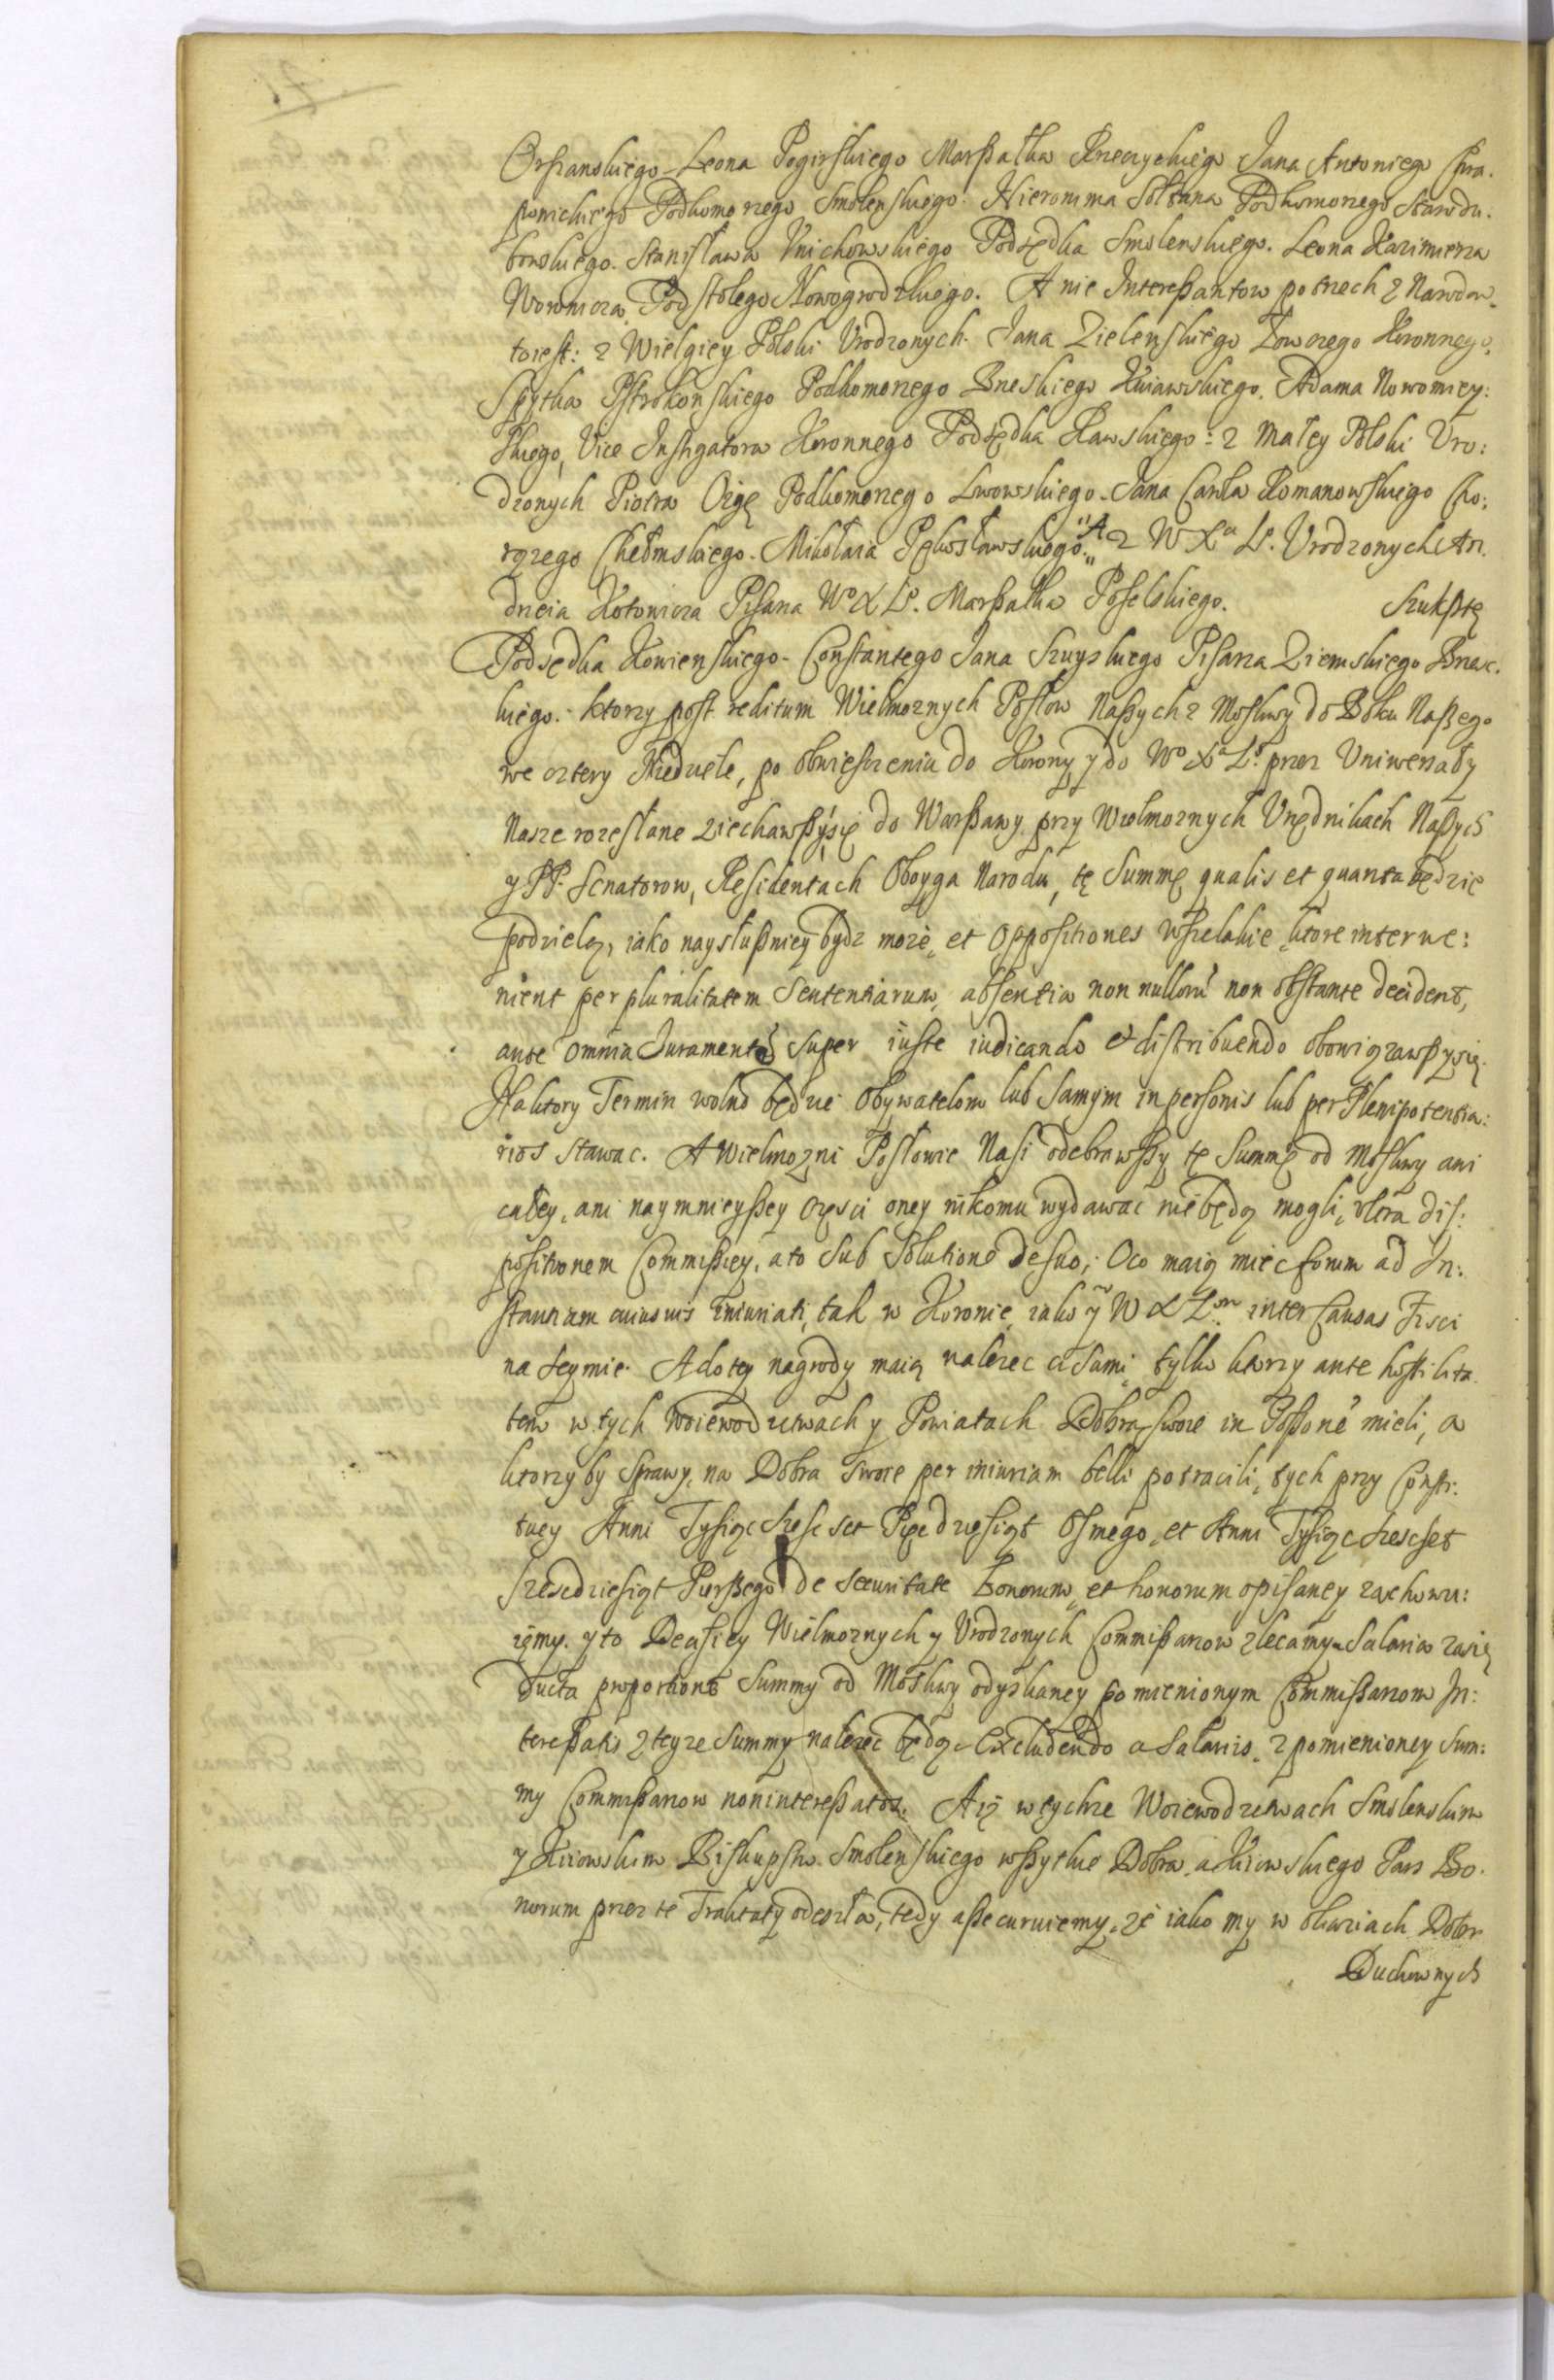 Orszanskiego Leona Pogirskiego Marszałka Rzeczyckiego Jana Antoniego Chra:
powickiego Podkomorzego Smolenskiego. Hieronima Sołtana Podkomorzego Starodu:
bowskiego. Stanisława Vnichowskiego Podsędka Smolenskiego. Leona Kazimierza
Podstolego Nowogrodzkiego. A nie Interessantow po trzech z Narodow
toiest: z Wielgiey Polski Vrodzonych Jana Zielenskiego Łowczego Koronnego,
Spytka Pstrokonskiego Podkomorzego Brzeskiego Kuiawskiego, Adama Nowomiey:
skiego, Vice Instigatora Koronnego Podsędka Rawskiego: z Małey Polski Vro:
dzonych Piotra Ożgę Podkomorzego Lwowskiego. Jana Carla Romanowskiego Cho:
rązego Chełmskiego. Mikołaia Pękosławskiego. A z W X a L. Vrodzonych An:
drzeia Kotowicza Pisarza Wo X L. Marszałka Poselskiego. Szuksztę
Podsędka Kowienskiego. Constantego Jana Szuyskiego Pisarza Ziemskiego Brzesc:
kiego. ktorzy post reditum Wielmoznych Posłow Naszych z Moskwy do Boku Naszego
we cztery Niedziele, po obwieszczeniu do Korony y do Wo Xa Lo przez Vniwersały
Nasze rozesłane ziechawszysię do Warszawy przy Wielmoznych Vrzędnikach Naszych
y PP. Senatorow, Residentach Oboyga Narodu, tę Summę qualis et quanta będzie
podzielą, iako naysłuszniey bydz moze, et oppositiones wszelakie, ktore interue:
nient per pluralitatem Sententiarum, absentia non nulloru non obstante decident,
ante omnia Juramento super iuste iudicando et distribuendo obowiązawszysię.
Naktory Termin wolno będzie Obywatelom lub Samym in personis lub per Plenipotentia:
rios stawac. A Wielmozni Posłowie Nasi odebrawszy tę Summę od Moskwy ani
całey, ani naymnieyszey częsci oney nikomu wydawac niebędą mogli, vltra dis:
positionem Commissiey, a to sub solutione de suo, Oco maią miec forum ad In:
stantiam cuiusuis iniuriati, tak w Koronie, iako y W X L inter Causas Fisci
na Seymie. A do tey nagrody maią nalezec ci sami tylko ktorzy ante hostilita:
tem w tych Woiewodztwach y Powiatach Dobra swoie in Possone mieli, a
ktorzyby sprawy, na Dobra swoie per iniuriam belli potracili, tych przy Consti:
tucy Anni Tysiąc szesc set Pięcdziesiąt Osmego, et Anni Tysiąc szescset
szescdziesiąt Pierszego de securitate bonorum, et honorum opisaney zachowu:
iemy. y to Decisiey Wielmoznych y Vrodzonych Commissarzow zlecamy. Salaria zasię
ducta proportione Summy od Moskwy odyskaney pomienionym Commissarzom In:
teressatis z teyze Summy nalezec będą. Excludendo a Salariis, z pomienioney Sum:
my Commissarzow noninteressatos. Aiż w tychze Woiewodztwach Smolenskim
y Kiiowskim Biskupstw. Smolenskiego wszytkie Dobra, a Kiiowskiego Pars Bo:
norum przez te Traktaty odeszła, tedy assecuruiemy, ze iako my w okaziach Dobr
Duchownych